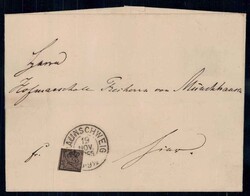 Herrn
Hofmarschall Freiherrn von Münchhausen
fr.
hier.
BRAUNSCHWEIG
19
NOV